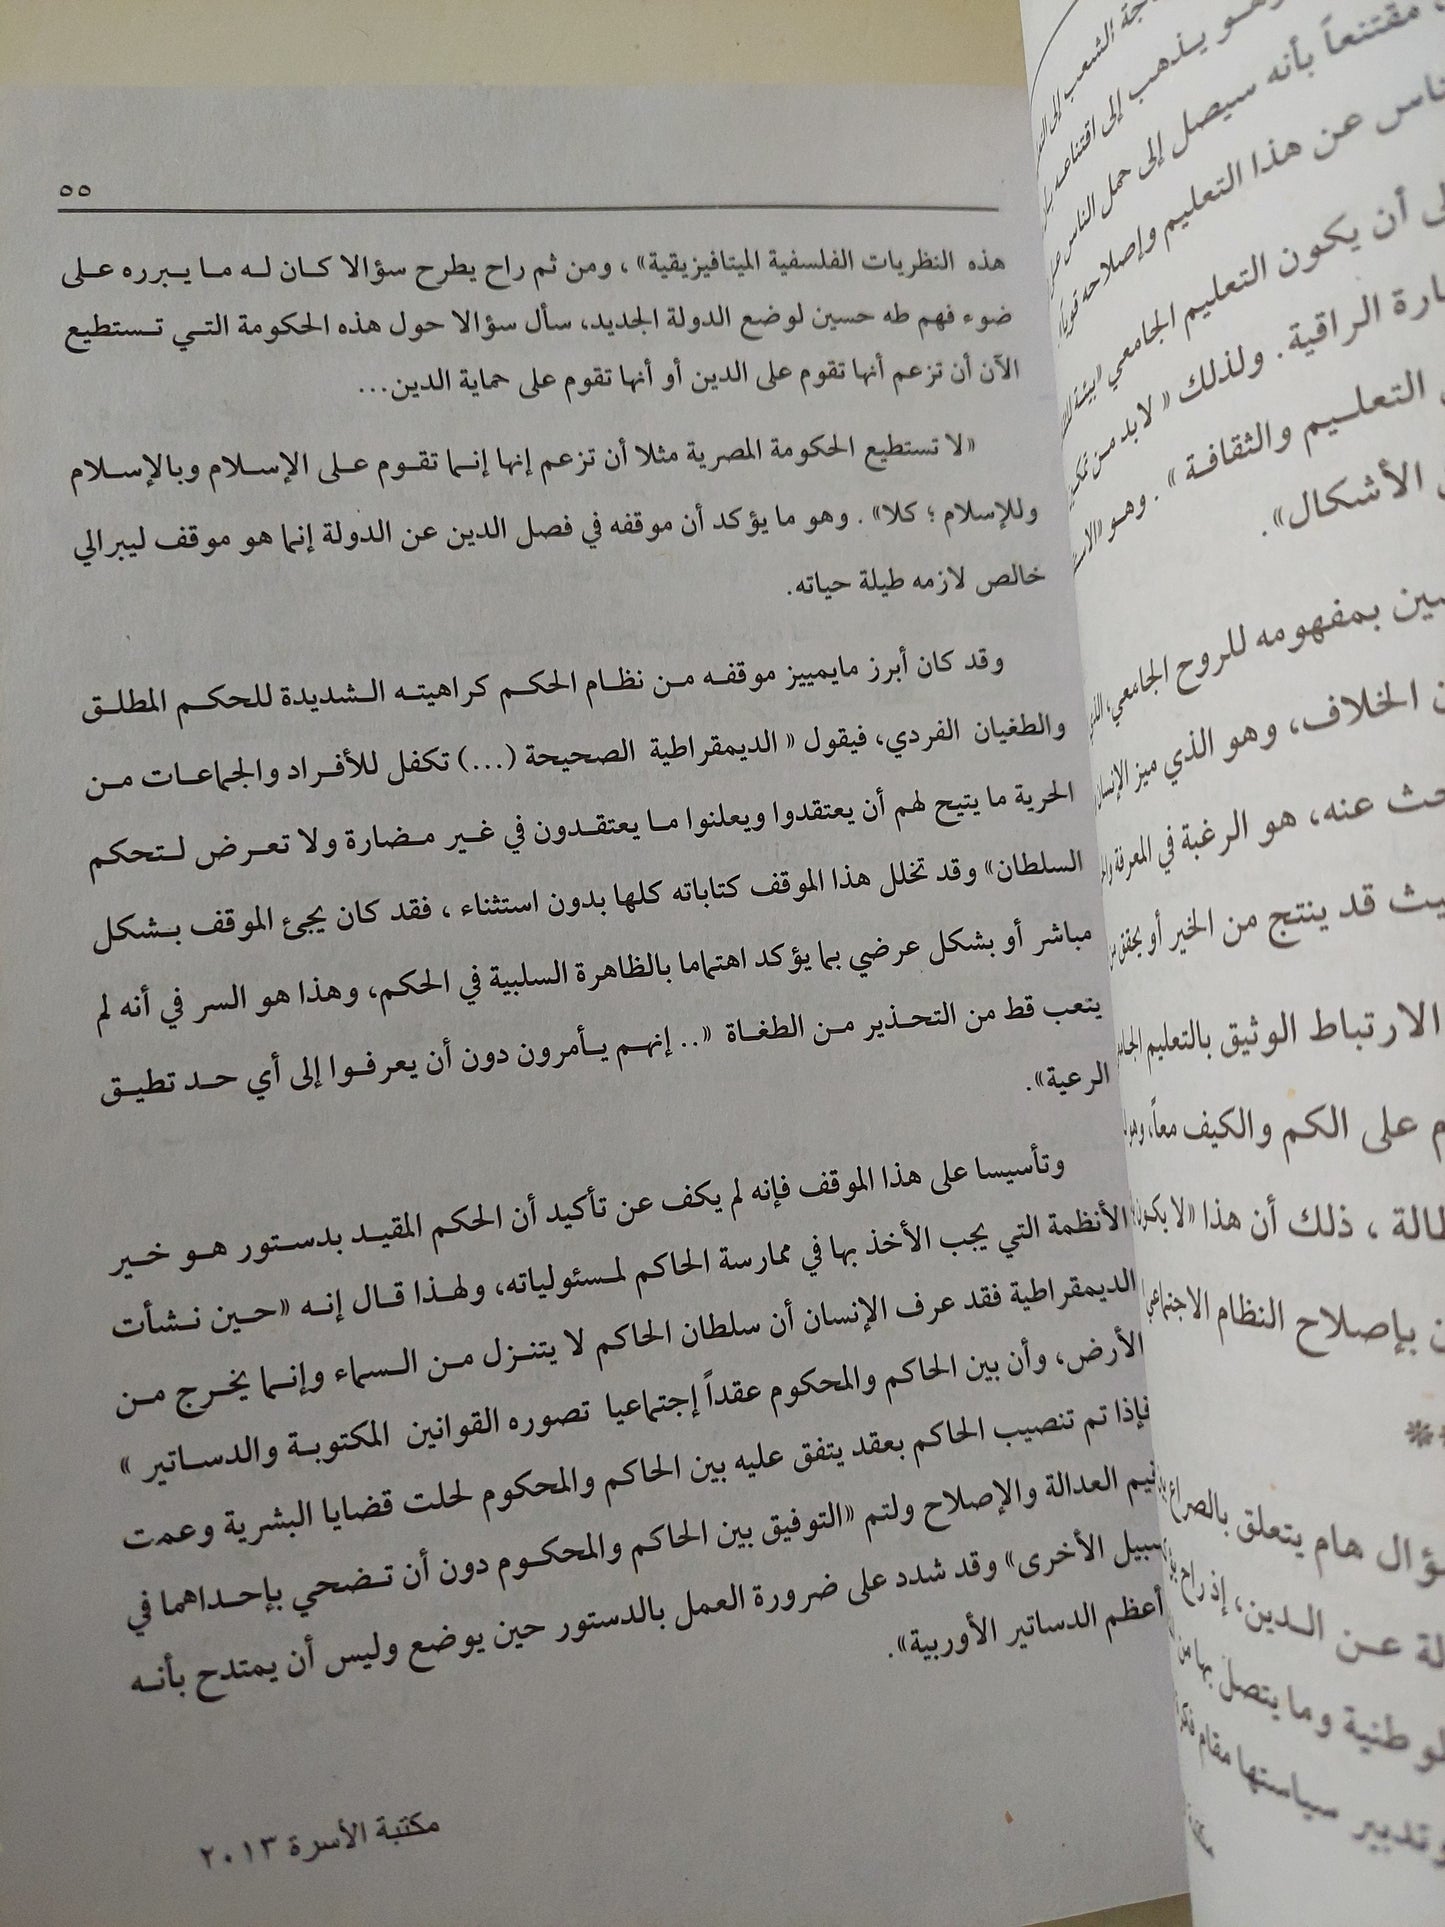 ٥٥
هذه النظريات الفلسفية الميتافيزيقية» ، ومن ثم راح يطرح سؤالا كان له ما يبرره على
ضوء فهم طه حسين لوضع الدولة الجديد، سأل سؤالا حول هذه الحكومة التي تستطيع
الآن أن تزعم أنها تقوم على الدين أو أنها تقوم على حماية الدين...
«لا تستطيع الحكومة المصرية مثلا أن تزعم إنها إنما تقوم على الإسلام وبالإسلام
وللإسلام ؛ كلا» . وهو ما يؤكد أن موقفه في فصل الدين عن الدولة إنما هو موقف ليبرالي
خالص لازمه طيلة حياته.
وقد كان أبرز مايمييز موقفه من نظام الحكم كراهيته الشديدة للحكم المطلق
والطغيان الفردي، فيقول « الديمقراطية الصحيحة (...) تكفل للأفراد والجماعات من
الحرية ما يتيح لهم أن يعتقدوا ويعلنوا ما يعتقدون في غير مضارة ولا تعرض لتحكم
السلطان» وقد تخلل هذا الموقف كتاباته كلها بدون استثناء ، فقد كان يجئ الموقف بشكل
مباشر أو بشكل عرضي بما يؤكد اهتماما بالظاهرة السلبية في الحكم، وهذا هو السر في أنه لم
يتعب قط من التحذير من الطغاة «.. إنهم يأمرون دون أن يعرفوا إلى أي حد تطيق
الرعية».
وتأسيسا على هذا الموقف فإنه لم يكف عن تأكيد أن الحكم المقيد بدستور هو خير
الأنظمة التي يجب الأخذ بها في ممارسة الحاكم لمسئولياته، ولهذا قال إنه «حين نشأت
الديمقراطية فقد عرف الإنسان أن سلطان الحاكم لا يتنزل من السماء وإنما يخرج من
الأرض، وأن بين الحاكم والمحكوم عقداً إجتماعيا تصوره القوانين المكتوبة والدساتير »
فإذا تم تنصيب الحاكم بعقد يتفق عليه بين الحاكم والمحكوم لحلت قضايا البشرية وعمت
قيم العدالة والإصلاح ولتم «التوفيق بين الحاكم والمحكوم دون أن تضحي بإحداهما في
سبيل الأخرى» وقد شدد على ضرورة العمل بالدستور حين يوضع وليس أن يمتدح بأنه
أعظم الدساتير الأوربية».
مكتبة الأسرة ٢٠١٣
الشعب إلى
وهو يذهب إلى اقتناعه
مقتنعاً بأنه سيصل إلى حمل الناس
عن هذا التعليم وإصلاحه
أن يكون التعليم الجامعي
الراقية. ولذلك « لابد من
التعليم والثقافة » . وهو
الأشكال».
بمفهومه للروح الجامعي،
الخلاف، وهو الذي ميز
عنه، هو الرغبة في المعرفة
قد ينتج من الخير أو
الارتباط الوثيق بالتعليم
على الكم والكيف معاً،
، ذلك أن هذا «لا يكون
بإصلاح النظام الاجتماعي
هام يتعلق بالصراع
عن الدين، إذ راح
وما يتصل بها من
وتدبير سياستها مقام